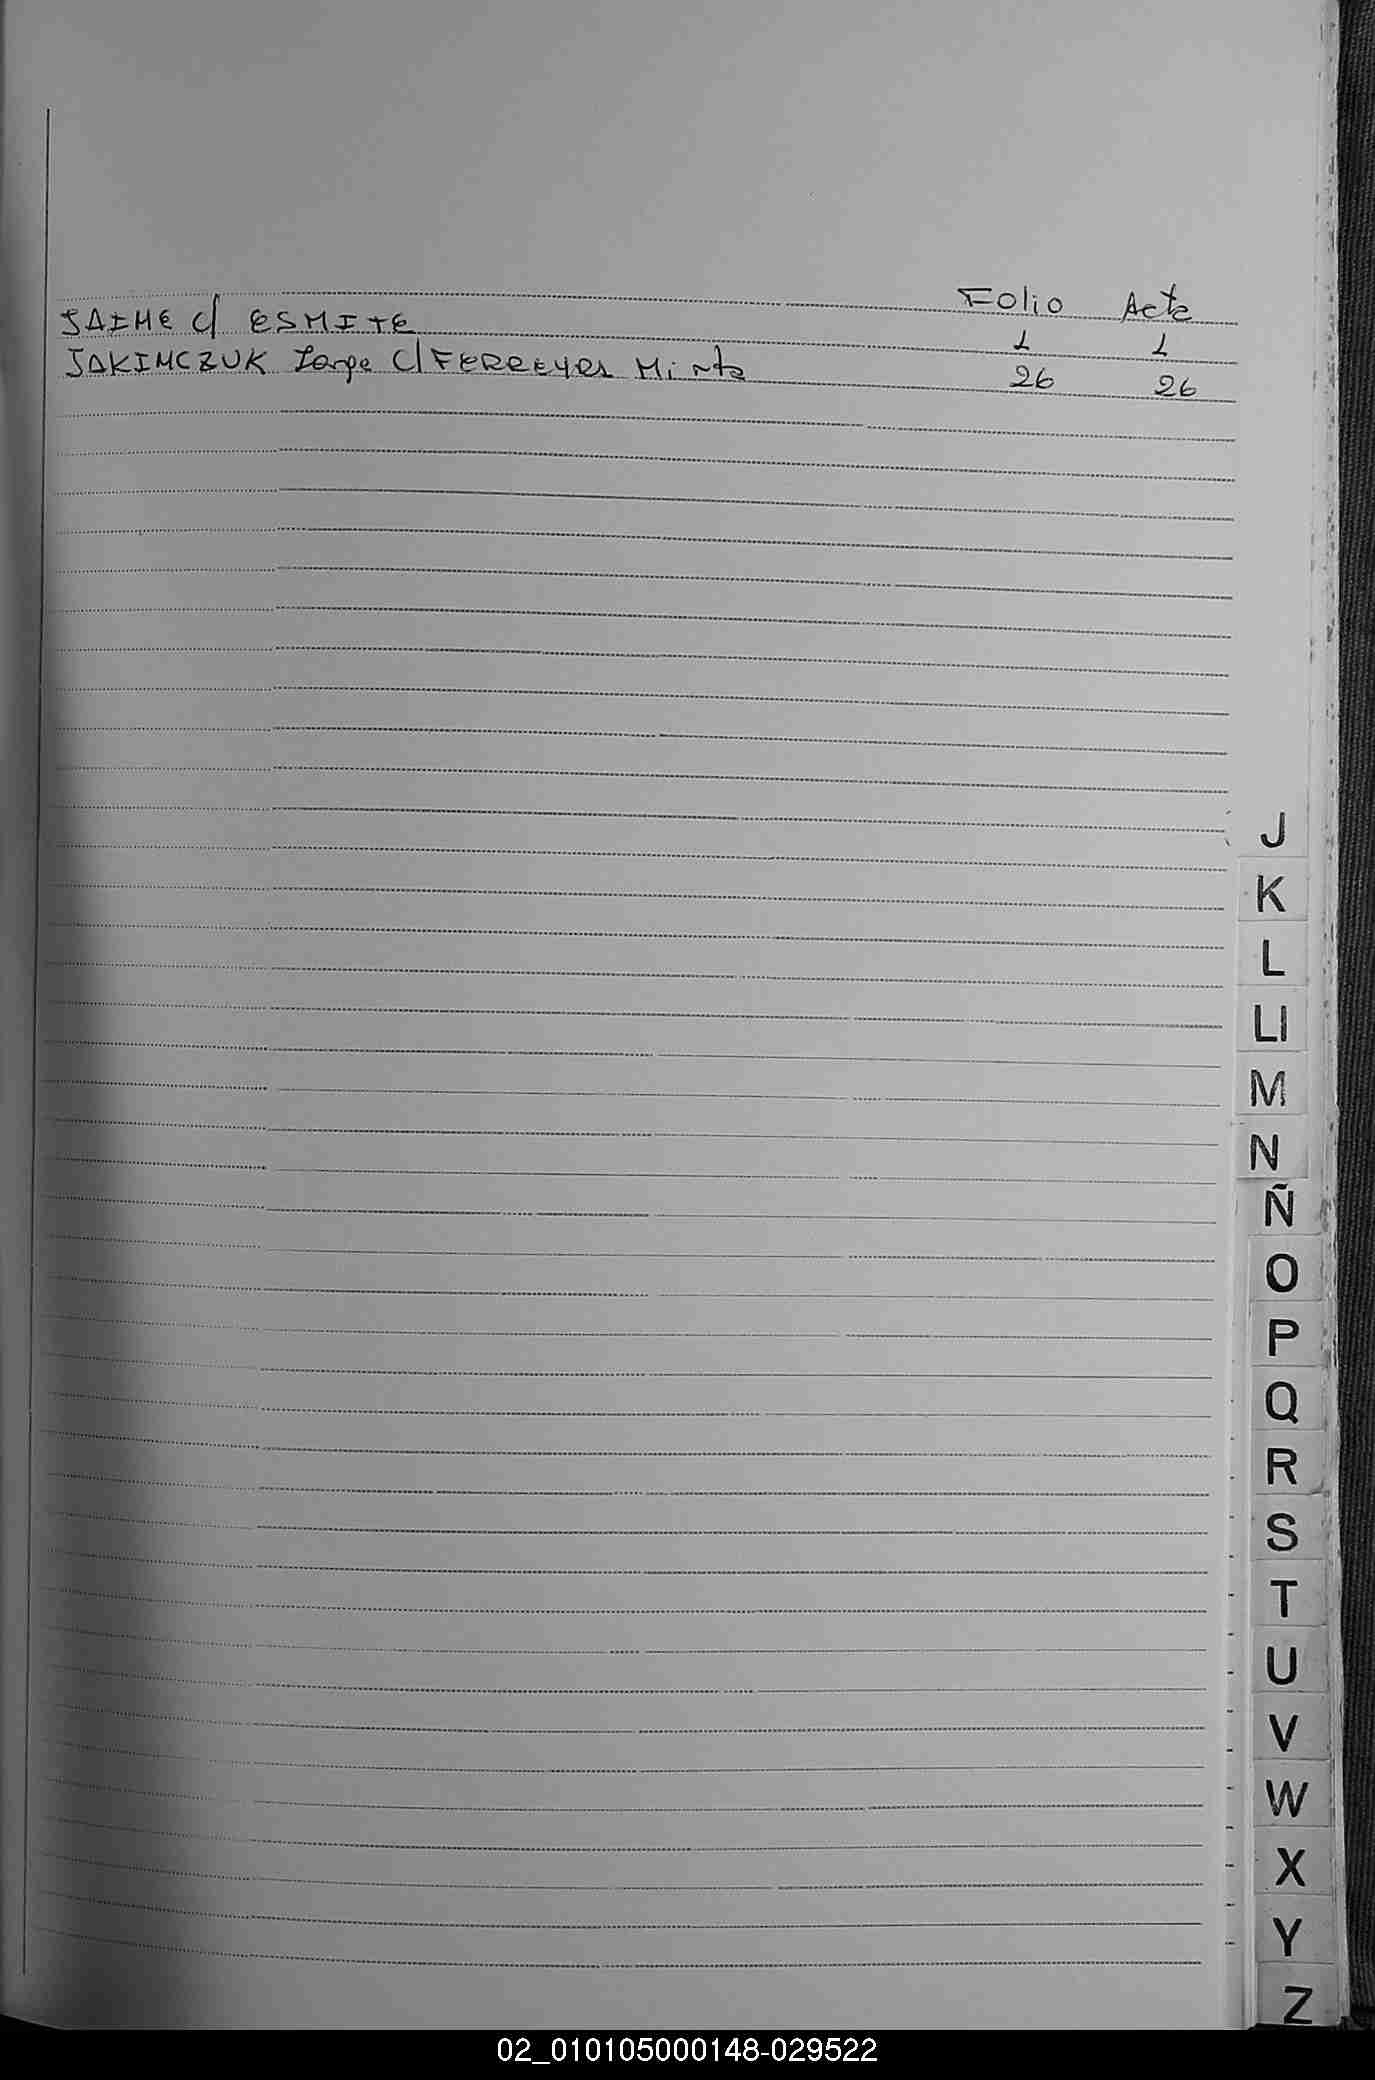 Folio Acta
JAIME c/ ESMITE 1 1
JAKIMCZUK Jorge C/ FERREYRA Mirta 26 26
J
K
L
Ll
M
N
Ñ
O
P
Q
R
S
T
U
V
W
X
Y
Z
02_010105000148-029522